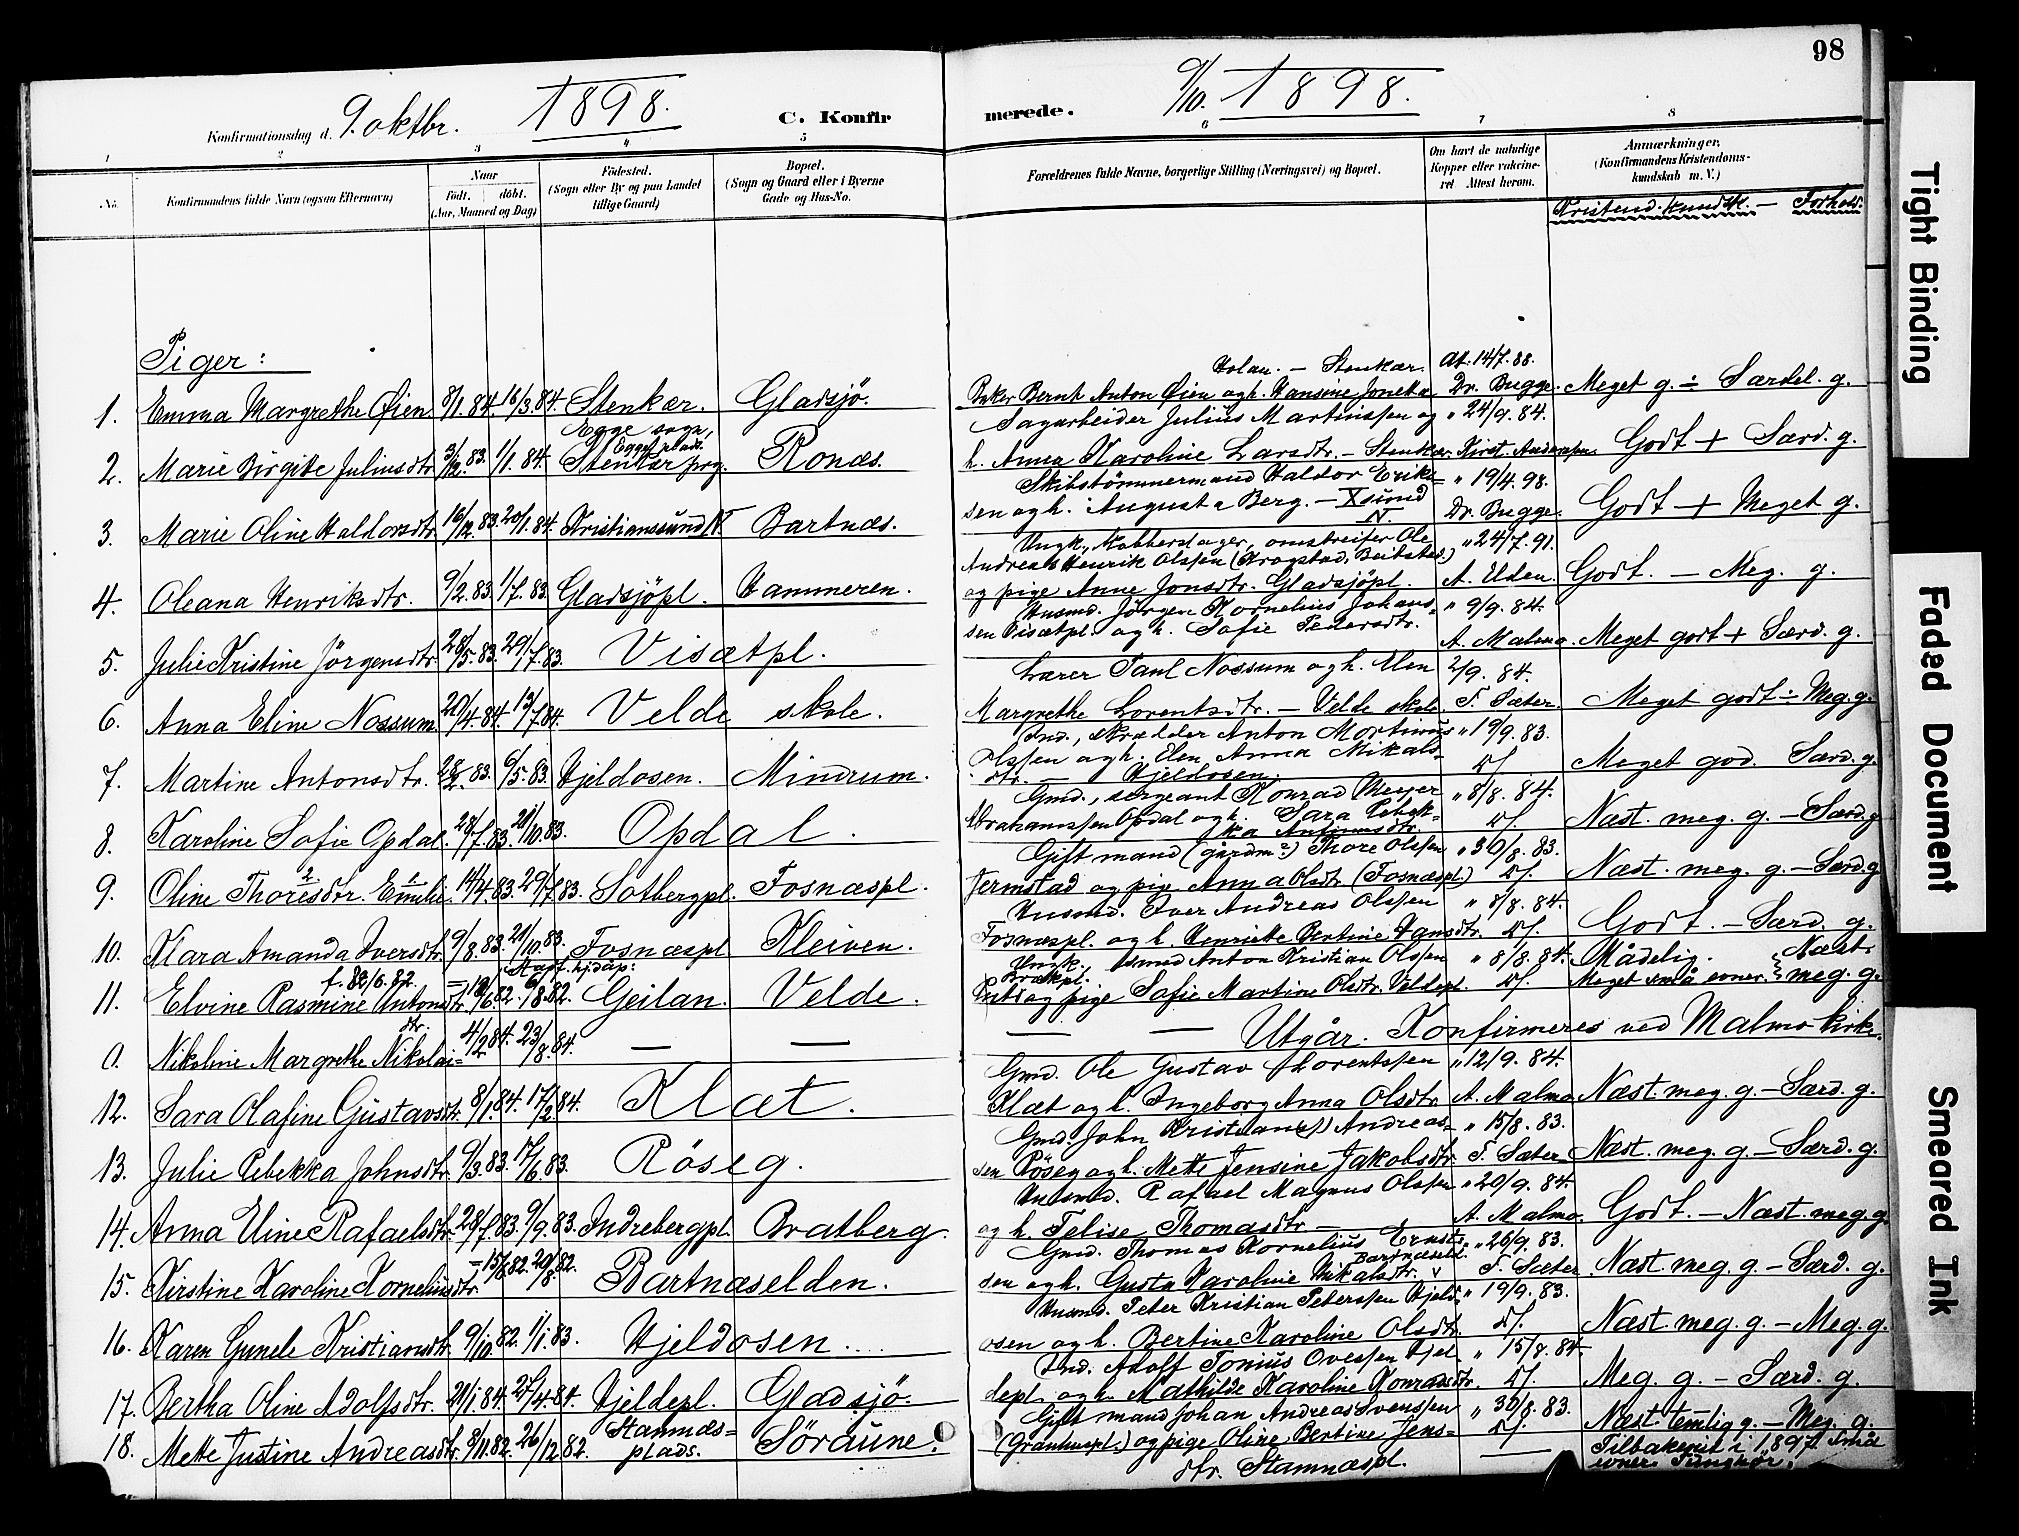 98
Konfirmationsdag d. 9. oktbr. 1898. C. Konfir
merede. 9/10. 1898.
1 2 3 4 5 6 7 8
No. Konfirmandens fulde Navn (ogsaa Efternavn) Naar født. døbt. (Aar, Maaned og Dag) Fødested. (Sogn eller By og paa Landet tillige Gaard) Bopæl. (Sogn og Gaard eller i Byerne Gade og Hus-No.
Forældrenes fulde Navne, borgerlige Stilling (Næringsvei) og Bopæl. Om havt de naturlige Kopper eller vaccineret Attest herom. Anmærkninger, (Konfirmandens Kristendomskundskab m. V.)
Kristend. kundsk. — Forhold.
Piger:
1. Emma Margrethe Øien 8/1.84. 16/3.84. Stenkær. Gladsjö.
Holan. — Stenkær. At. 14/7.88.
Baker Bernt Anton Øien og h. Hansine Jonetta Dr. Bugge. Meget g. ÷ Særdel. g.
2. Marie Birgitte Juliusdtr. 3/12.83. 1/1.84. Egge sogn, Eggeplads. Stenkær prg. Ronæs.
Sagarbeider Julius Martinssen og " 24/9.84.
h. Anna Karoline Larsdtr. — Stenkær. Kirst. Anderssen Godt + Særd. g.
3. Marie Oline Haldorsdtr. 16/12.83. 20/1.84. Kristianssund N. Bartnæs.
Skibstömmermand Haldor Erik= " 19/4.98.
sen og h. Augusta Berg. — Xsund N. Dr. Bugge. Godt + Meget g.
4. Oleana Henriksdtr. 9/2.83. 1/7.83. Gladsjöpl. Hammeren.
Ungk., kobberslager, omstreifer Ole " 24/7.91.
Andreas Henrik Olssen (Krogstad, Beitstad.)
og pige Anne Jonsdtr. Gladsjöpl. A. Elden. Godt. — Meg. g.
5. Julie Kristine Jörgensdtr. 28/5.83. 29/7.83. Visætpl.
Husmd. Jörgen Kornelius Johans= " 9/9.84.
sen Visætpl. og h. Sofie Pedersdtr. A. Malmo. Meget godt + Særd. g.
6. Anna Eline Nossum. 20/4.84. 13/7.84. Velde skole.
Lærer Paul Nossum og h. Elen 2/9.84.
Margrethe Lorentsdtr. — Velde skole. F. Sæter. Meget godt ÷ Meg. g.
7. Martine Antonsdtr. 28/2.83. 6/5.83. Hjeldosen. Mindrum.
Ind., skrædder Anton Martinus " 19/9.83.
Olssen og h. Elen Anna Mikals=
dtr. — Hjeldosen. D/. Meget god. Særd. g.
8. Karoline Sofie Opdal. 28/7.83. 21/10.83. Opdal.
Gmd., sergeant Konrad Meyer " 8/8.84.
Abrahamssen Opdal og h. Sara Rebek=
ka Antonsdtr. D/. Næst. meg. g. — Særd. g
9. Oline Thoresdtr. Emelie. 14/4.83. 29/7.83. Solbergpl. Fosnæspl.
Gift mand (gårdm.) Thore Olssen " 30/8.83.
Jermstad og pige Anna Olsdtr. (Fosnæspl.) D/. Næst. meg. g. — Særd. g
10. Klara Amanda Iversdtr. 9/8.83. 21/10.83. Fosnæspl. Kleiven.
Husmd. Iver Andreas Olssen " 8/8.84.
Fosnæspl. og h. Henriette Bertine Hansdtr. D/. Godt. — Særd. g.
11. Elvine Rasmine Antonsdtr. Geilan. Velde.
Ungk. Anton Kristian Olssen " 8/8.84. Mådelig. Næst.
og pige Sofie Martine Olsdtr. Veldepl. D/. Meget små evner. meg. g.
0. Nikoline Margrethe Nikolai=dtr. 4/2.84. 23/8.84. — —
— — Utgår. Konfirmeres ved Malmo kirke.
12. Sara Olafine Gustavsdtr. 8/1.84. 17/2.84. Klæt.
Gmd. Ole Gustav Lorentssen " 12/9.84.
Klæt og h. Ingeborg Anna Olsdtr. A. Malmo. Næst. meg. g. — Særd. g.
13. Julie Rebekka Johnsdtr. 9/3.83. 17/6.83. Röseg.
Gmd. John Kristian Andreas= " 15/8.83.
sen Röseg og h. Mette Jensine Jakobsdtr. F. Sæter. Næst. meg. g. — Særd. g.
14. Anna Eline Rafaelsdtr. 28/7.83. 9/9.83. Indrebergpl. Bratberg.
Husmd. Rafael Magnus Olssen " 20/9.84.
og h. Felise Thomasdtr. — A. Malmo. Godt. — Næst. meg. g
15. Kirstine Karoline Korneliusdtr. 15/6.82. 20/8.82. Bartnæselden.
Gmd. Thomas Kornelius Ernst= " 26/9.83.
sen og h. Gusta Karoline Mikalsdtr. Bartnæseld. F. Sæter. Næst. meg. g. — Særd. g.
16. Karen Gunele Kristiansdtr. 9/10.82. 1/1.83. Hjeldosen.
Husmd. Peter Kristian Peterssen Hjeld= " 19/9.83.
osen og h. Bertine Karoline Olsdtr. D/. Næst. meg. g. — Meg. g.
17. Bertha Oline Adolfsdtr. 21/1.84. 27/4.84. Hjeldepl. Gladsjö.
Ind. Adolf Tonius Ovessen Hjel= " 15/8.84.
depl. og h. Mathilde Karoline Konradsdtr. D/. Meg. g. — Særd. g.
18. Mette Justine Andreasdtr. 8/11.82. 26/12.82. Stamnæs=plads. Söraune.
Gift mand Johan Andreas Svenssen " 30/8.83.
(Granhuspl.) og pige Oline Bertine Jens= D/. Næst. temlig g. — Meg. g.
dtr. Stamnæspl. — Tilbakevist i 1897. små
evner. Tunghør.
Tight Binding
Faded Document
Smeared Ink